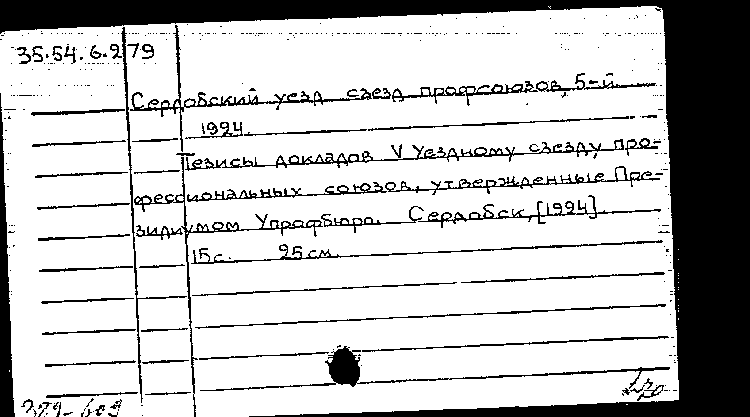 35.54.6.279
Сердобский уезд съезд профсоюзов, 5-й.
1924.
Тезисы докладов V Уездному съезду про-
фессиональных союзов, утвержденные Пре-
зидиумом Упрофбюро. Сердобск, [1924].
15 с. 25 см.